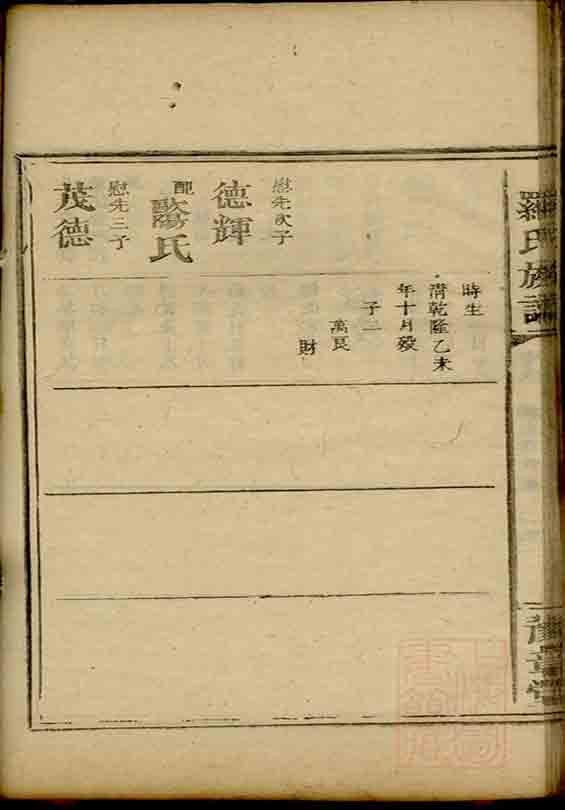 羅氏族譜
豫章堂
時生
清乾隆乙未
年十月歿
子二
萬良
財
慰先次子
德輝
配
歐陽氏
慰先三子
茂德